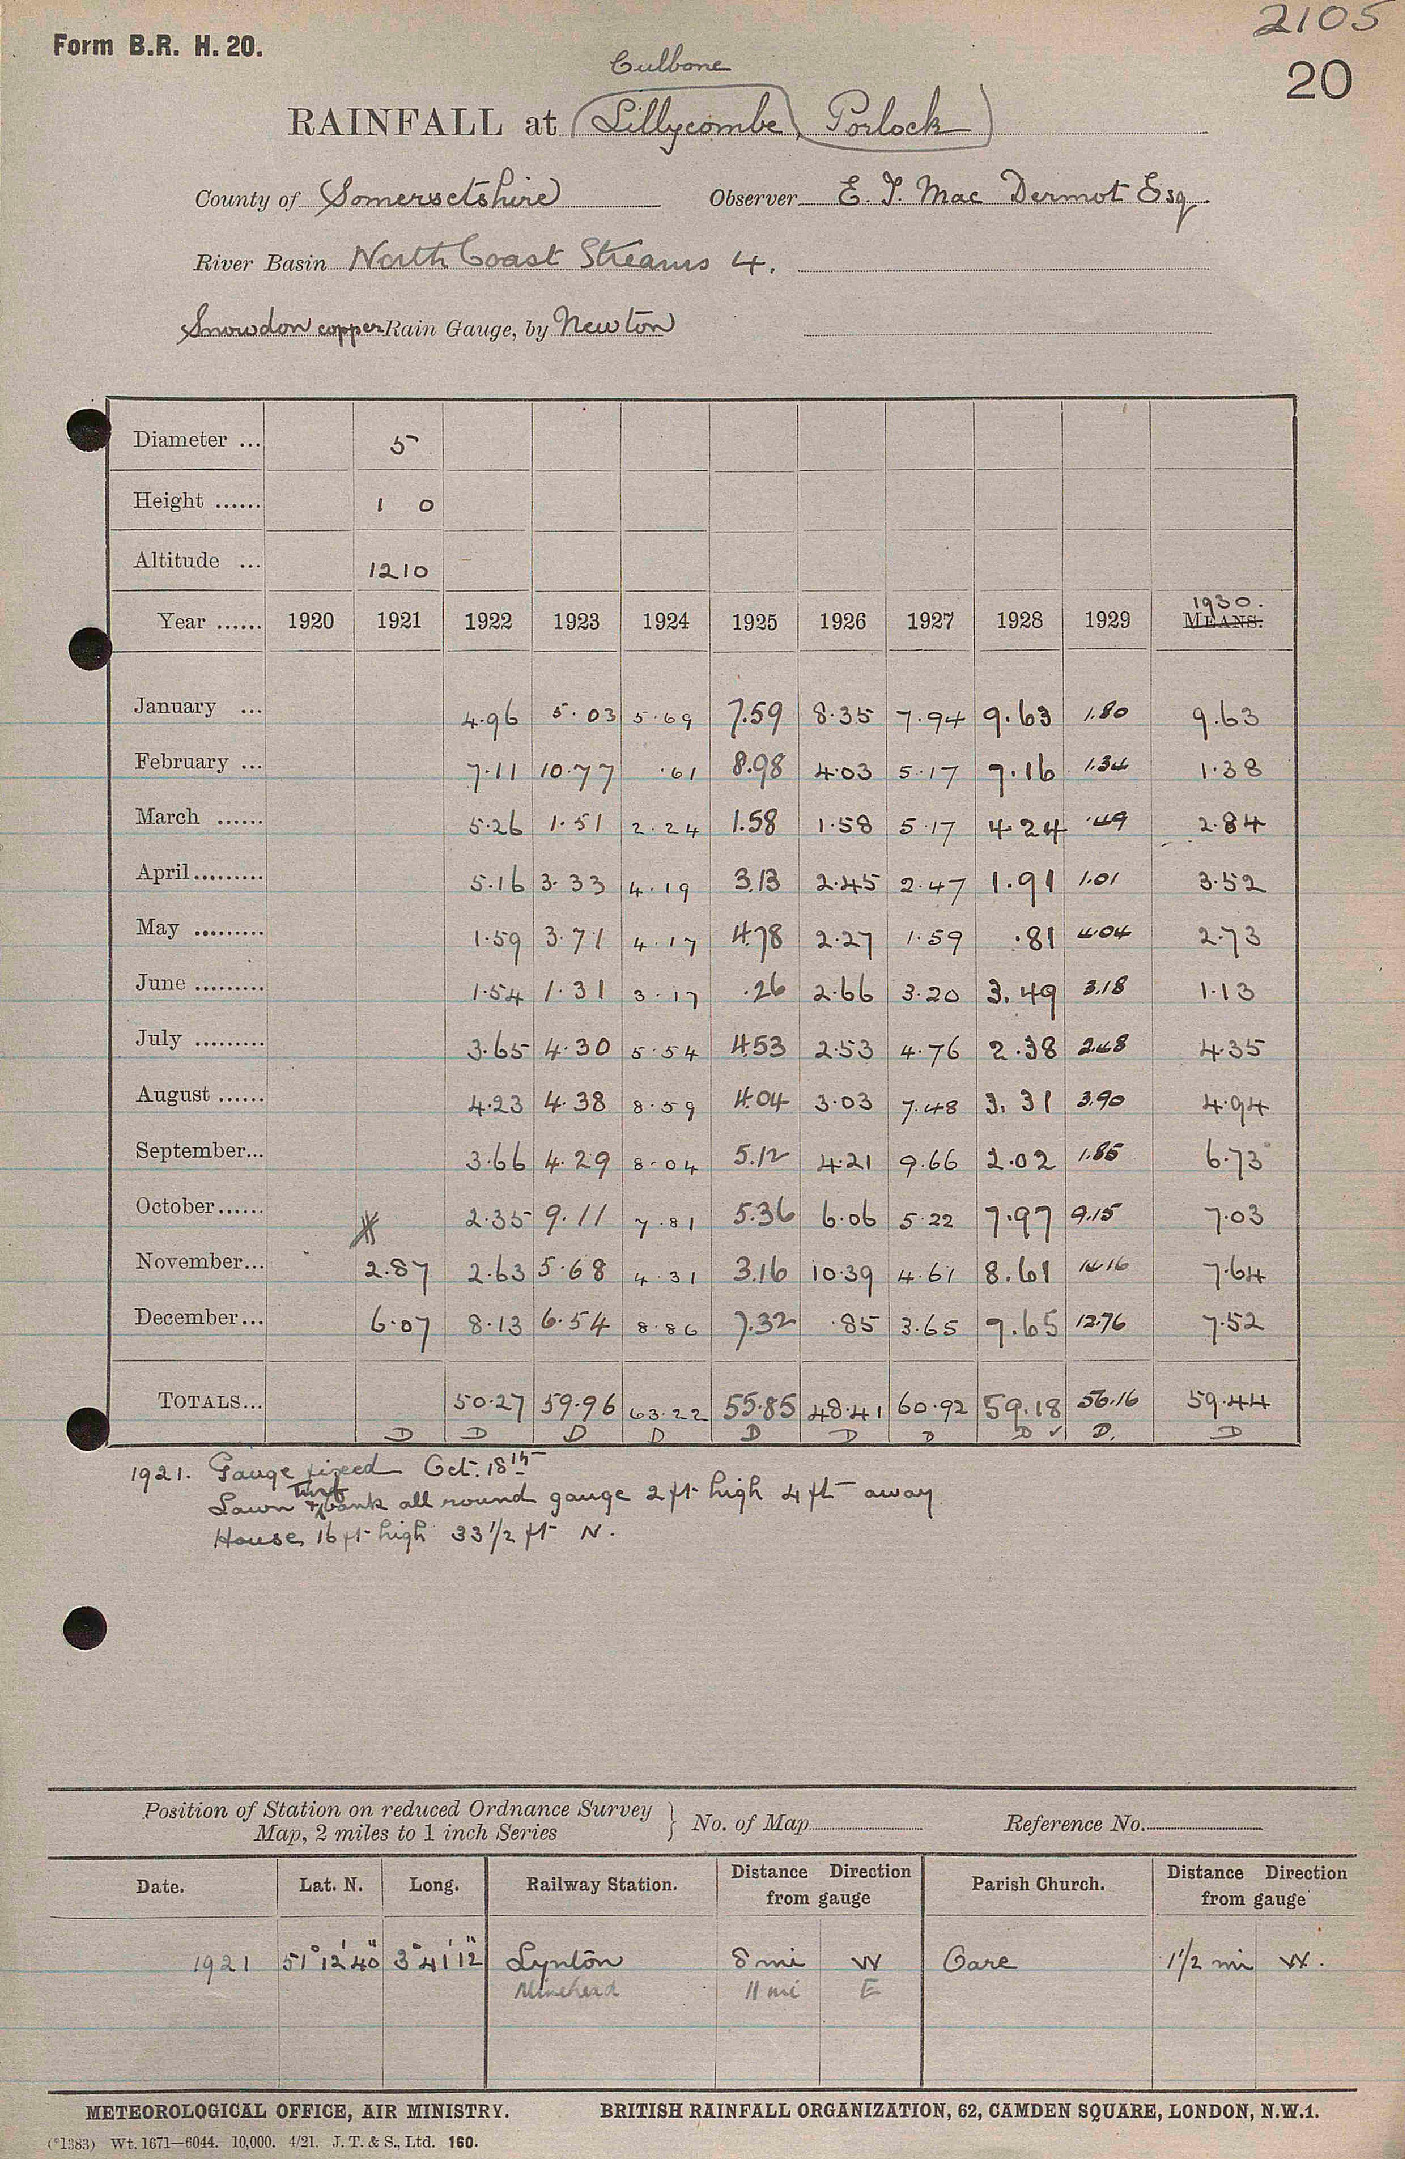 2105
Form B.R. H. 20.
20
Culbone
RAINFALL at (Lillycombe, Porlock)
County of Somersetshire Observer E. T. Mac Dermot Esq.
River Basin North Coast Streams 4.
Snowdon copper Rain Gauge, by Newton
Diameter ... 5
Height ...... 1 0
Altitude ... 1210
1930.
Year ...... 1920 1921 1922 1923 1924 1925 1926 1927 1928 1929 MEANS.
January ... 4.96 5.03 5.69 7.59 8.35 7.94 9.63 1.80 9.63
February ... 7.11 10.77 .61 8.98 4.03 5.17 7.16 1.34 1.38
March ...... 5.26 1.51 2.24 1.58 1.58 5.17 4.24 .49 2.84
April......... 5.16 3.33 4.19 3.13 2.45 2.47 1.91 1.01 3.52
May ......... 1.59 3.71 4.17 4.78 2.27 1.59 .81 4.04 2.73
June ......... 1.54 1.31 3.17 .26 2.66 3.20 3.49 3.18 1.13
July ......... 3.65 4.30 5.54 4.53 2.53 4.76 2.38 2.48 4.35
August ...... 4.23 4.38 8.59 4.04 3.03 7.48 3.31 3.90 4.94
September... 3.66 4.29 8.04 5.12 4.21 9.66 2.02 1.85 6.73
October...... 2.35 9.11 7.81 5.36 6.06 5.22 7.97 9.15 7.03
November... 2.87 2.63 5.68 4.31 3.16 10.39 4.61 8.61 14.16 7.64
December... 6.07 8.13 6.54 8.86 7.32 .85 3.65 7.65 12.76 7.52
TOTALS... 50.27 59.96 63.22 55.85 48.41 60.92 59.18 56.16 59.44
D D D D D D D D ✓ D. D
1921. Gauge fixed Oct. 18th
Turf
Lawn & bank all round gauge 2 ft high 4 ft away
House 16 ft high 33 1/2 ft N.
Position of Station on reduced Ordnance Survey Map, 2 miles to 1 inch Series } No. of Map Reference No.
Date. Lat. N. Long. Railway Station. Distance Direction from gauge Parish Church. Distance Direction from gauge
1921 51° 12' 40" 3° 41' 12" Lynton 8 mi W Oare 1 1/2 mi W.
Minehead 11 mi E
METEOROLOGICAL OFFICE, AIR MINISTRY. BRITISH RAINFALL ORGANIZATION, 62, CAMDEN SQUARE, LONDON, N.W.1.
(*1383) Wt. 1671—6044. 10,000. 4/21. J. T. & S., Ltd. 160.